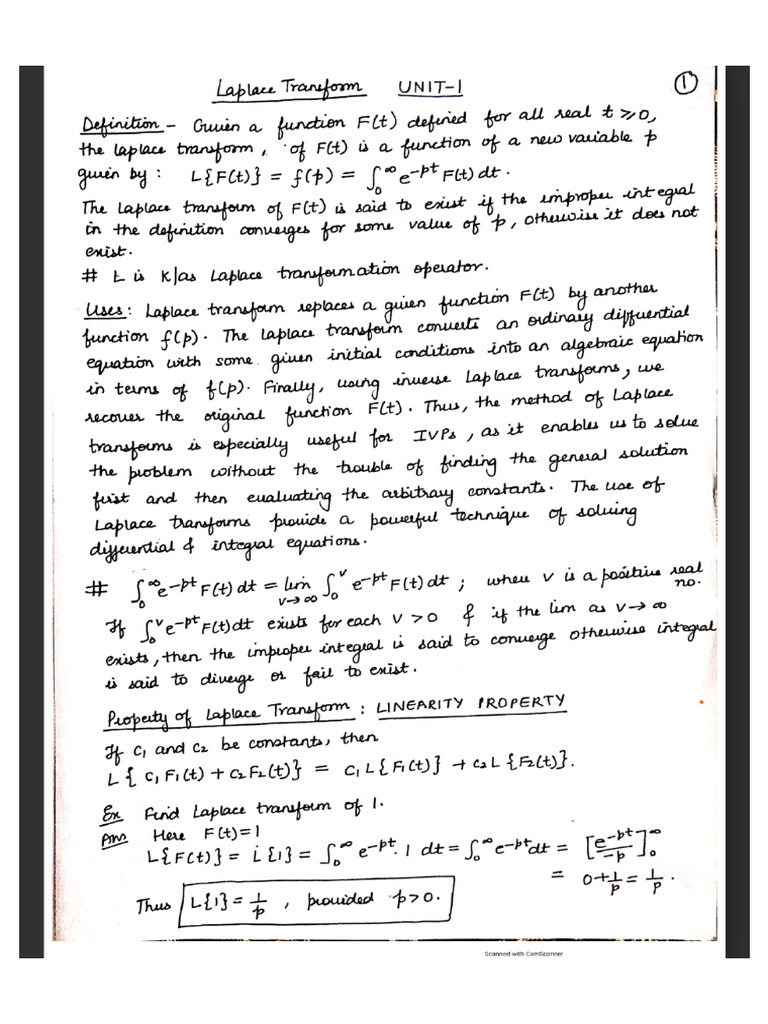 Laplace Transform UNIT-1 ①
Definition - Given a function F(t) defined for all real t ≥ 0,
the laplace transform, of F(t) is a function of a new variable p
given by : L{F(t)} = f(p) = ∫₀^∞ e^-pt F(t) dt.
The Laplace transform of F(t) is said to exist if the improper integral
in the definition converges for some value of p, otherwise it does not
exist.
# L is K/as Laplace transformation operator.
Uses : Laplace transform replaces a given function F(t) by another
function f(p). The laplace transform converts an ordinary differential
equation with some given initial conditions into an algebraic equation
in terms of f(p). Finally, using inverse Laplace transforms, we
recover the original function F(t). Thus, the method of Laplace
transforms is especially useful for IVPs, as it enables us to solve
the problem without the trouble of finding the general solution
first and then evaluating the arbitrary constants. The use of
Laplace transforms provide a powerful technique of solving
differential & integral equations.
# ∫₀^∞ e^-pt F(t) dt = lim v→∞ ∫₀^v e^-pt F(t) dt ; where v is a positive real no.
If ∫₀^v e^-pt F(t) dt exists for each v > 0 & if the lim as v→∞
exists, then the improper integral is said to converge otherwise integral
is said to diverge or fail to exist.
Property of Laplace Transform : LINEARITY PROPERTY
If C₁ and C₂ be constants, then
L{C₁F₁(t) + C₂F₂(t)} = C₁L{F₁(t)} + C₂L{F₂(t)}.
Ex Find Laplace transform of 1.
Ans Here F(t)=1
L{F(t)} = L{1} = ∫₀^∞ e^-pt. 1 dt = ∫₀^∞ e^-pt dt = [e^-pt/-p]₀^∞
= 0+1/p = 1/p.
Thus L{1} = 1/p, provided p>0.
Scanned with CamScanner